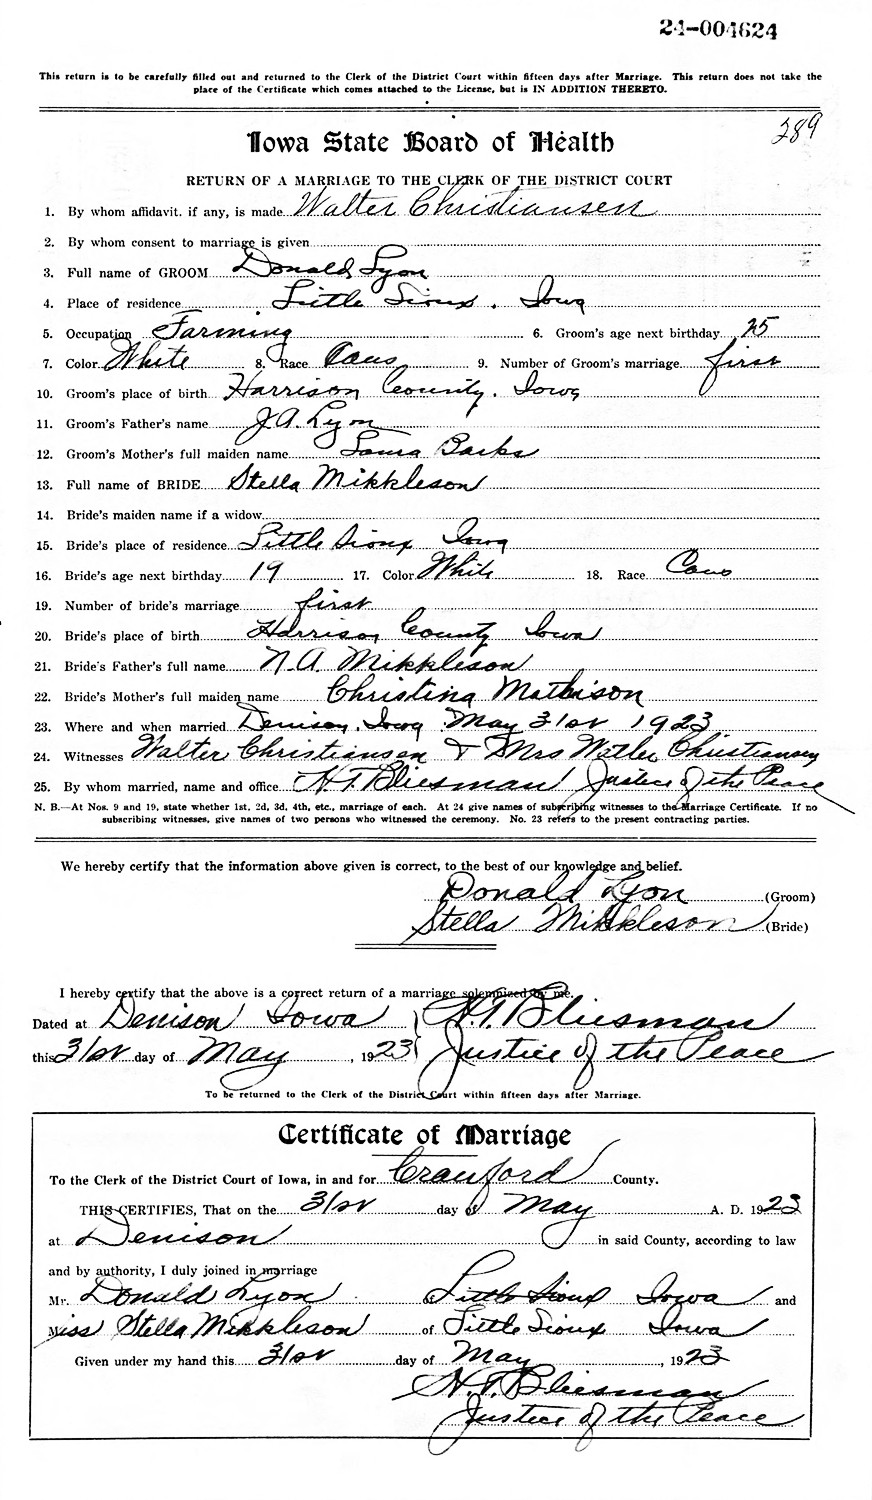 24-004624
This return is to be carefully filled out and returned to the Clerk of the District Court within fifteen days after Marriage. This return does not take the
place of the Certificate which comes attached to the License, but is IN ADDITION THERETO.
289
Iowa State Board of Health
RETURN OF A MARRIAGE TO THE CLERK OF THE DISTRICT COURT
1. By whom affidavit, if any, is made Walter Christiansen
2. By whom consent to marriage is given
3. Full name of GROOM Donald Lyon
4. Place of residence Little Sioux, Iowa
5. Occupation Farming 6. Groom's age next birthday 25
7. Color White 8. Race Caus 9. Number of Groom's marriage first
10. Groom's place of birth Harrison County, Iowa
11. Groom's Father's name J.A. Lyon
12. Groom's Mother's full maiden name Laura Barks
13. Full name of BRIDE Stella Mikkleson
14. Bride's maiden name if a widow
15. Bride's place of residence Little Sioux Iowa
16. Bride's age next birthday 19 17. Color White 18. Race Caus
19. Number of bride's marriage first
20. Bride's place of birth Harrison County Iowa
21. Bride's Father's full name N.A. Mikkleson
22. Bride's Mother's full maiden name Christina Mathison
23. Where and when married Denison, Iowa May 31st 1923
24. Witnesses Walter Christiansen & Mrs Walter Christiansen
25. By whom married, name and office H.T. Bliesman Justice of the Peace
N. B.—At Nos. 9 and 19, state whether 1st, 2d, 3d, 4th, etc., marriage of each. At 24 give names of subscribing witnesses to the Marriage Certificate. If no
subscribing witnesses, give names of two persons who witnessed the ceremony. No. 23 refers to the present contracting parties.
We hereby certify that the information above given is correct, to the best of our knowledge and belief.
Donald Lyon (Groom)
Stella Mikkleson (Bride)
I hereby certify that the above is a correct return of a marriage solemnized by me.
Dated at Denison Iowa H.T. Bliesman
this 31st day of May, 1923 Justice of the Peace
To be returned to the Clerk of the District Court within fifteen days after Marriage.
Certificate of Marriage
To the Clerk of the District Court of Iowa, in and for Crawford County.
THIS CERTIFIES, That on the 31st day of May A. D. 1923
at Denison in said County, according to law
and by authority, I duly joined in marriage
Mr. Donald Lyon of Little Sioux Iowa and
Miss Stella Mikkleson of Little Sioux Iowa
Given under my hand this 31st day of May, 1923
H.T. Bliesman
Justice of the Peace